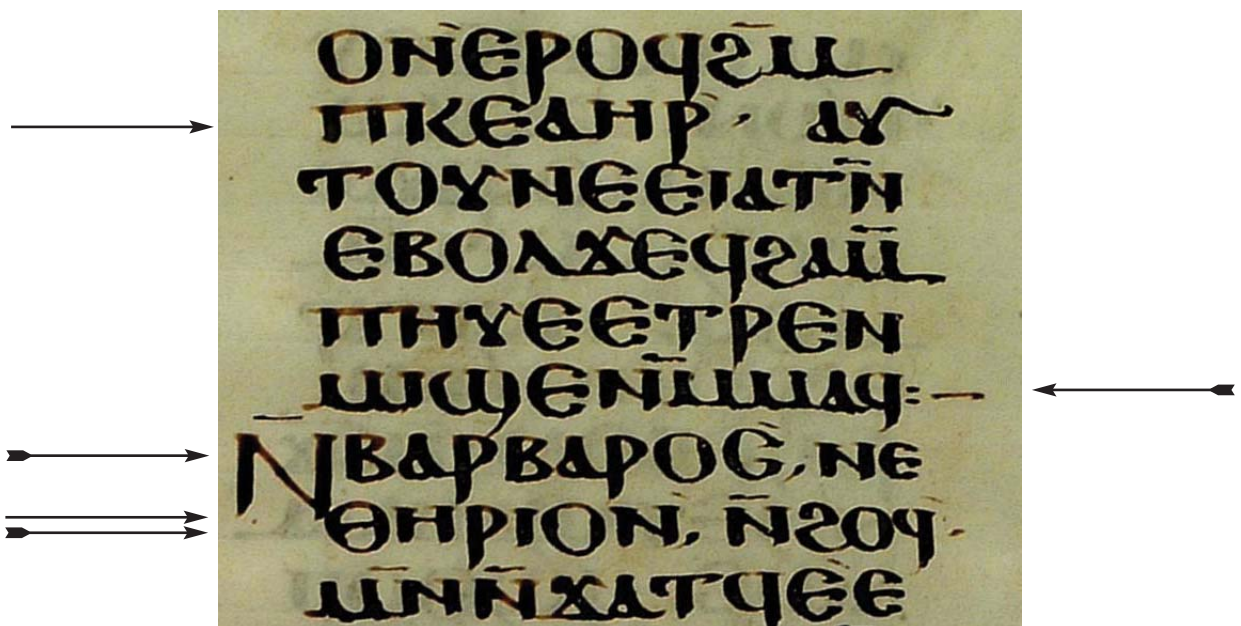 ⲟⲛⲉⲣⲟϥϩⲙ̄
ⲡⲕⲉⲁⲏⲣ· ⲁⲩ
ⲧⲟⲩⲛⲉⲉⲓⲁⲧⲛ̄
ⲉⲃⲟⲗϫⲉϥϩⲁⲙ̄
ⲡⲏⲩⲉⲉⲧⲣⲉⲛ
ⲙⲓϣⲉⲛⲙ̄ⲙⲁϥ:—
ⲛ̄ⲃⲁⲣⲃⲁⲣⲟⲥ, ⲛⲉ
ⲑⲏⲣⲓⲟⲛ, ⲛ̄ϩⲟϥ·
ⲙⲛ̄ⲛ̄ϫⲁⲧϥⲉⲉ